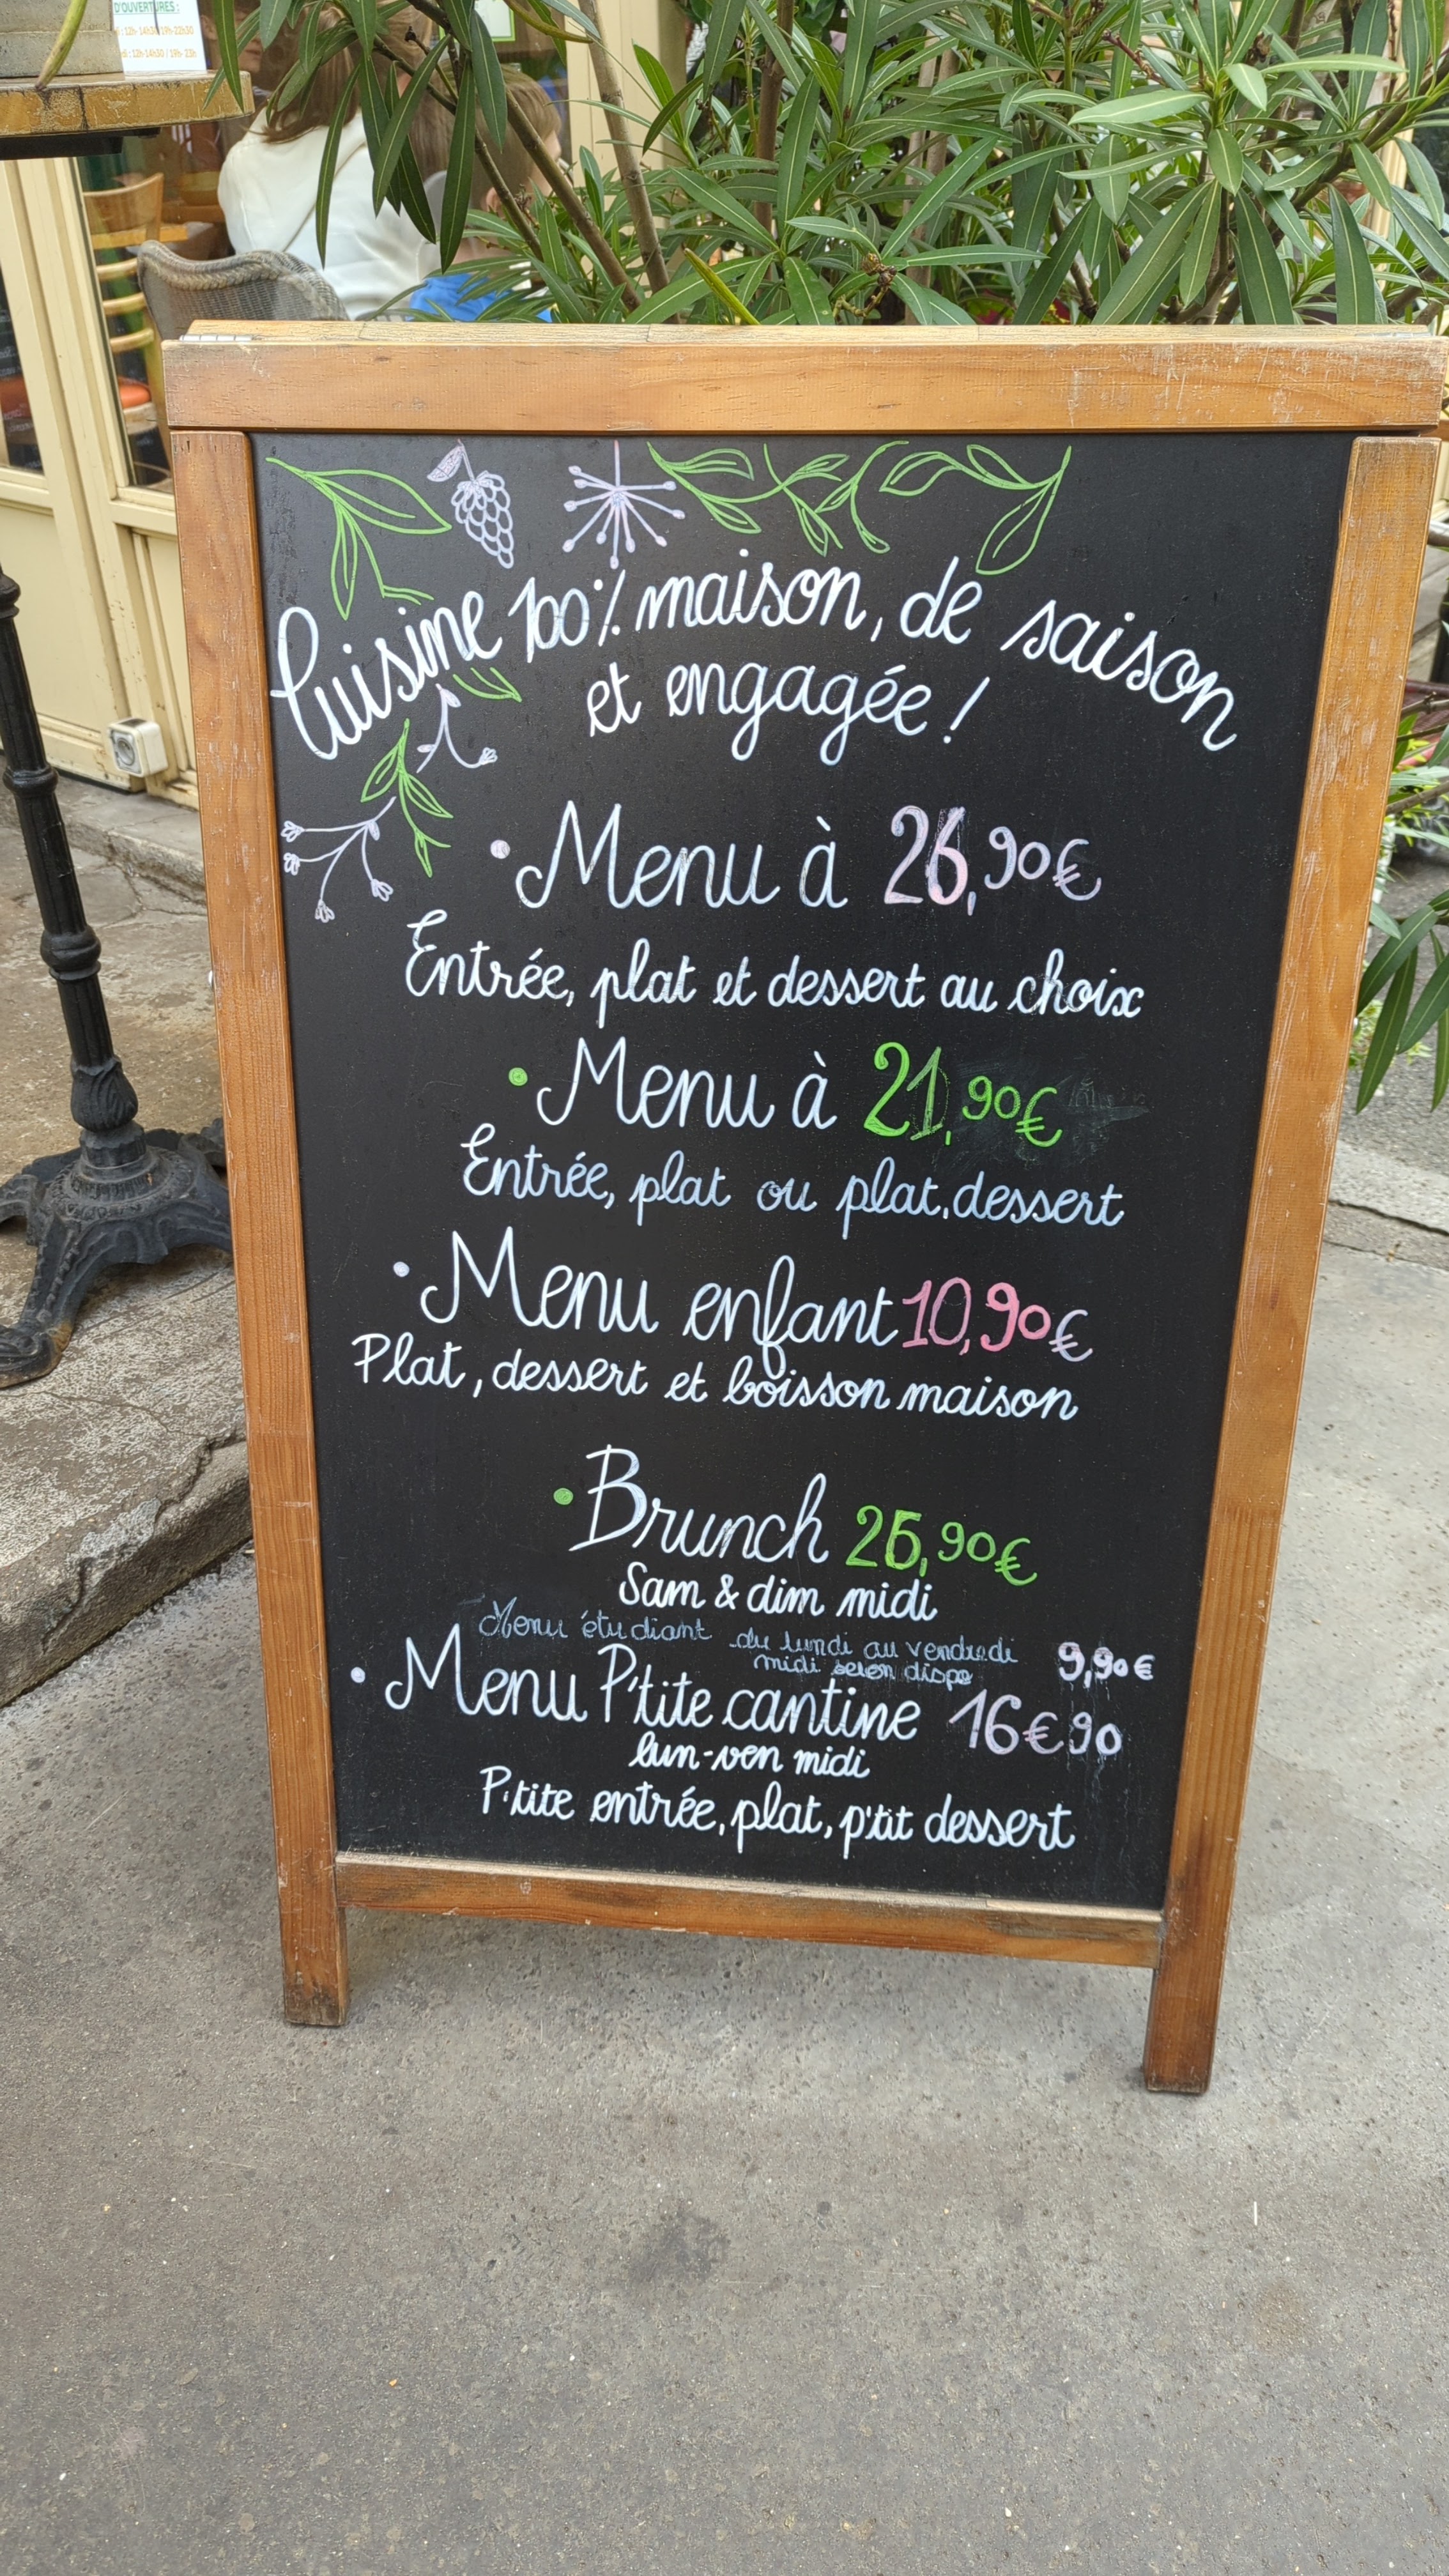 D'OUVERTURES :
Cuisine 100% maison, de saison
et engagée !
• Menu à 26,90€
Entrée, plat et dessert au choix
• Menu à 21,90€
Entrée, plat ou plat, dessert
• Menu enfant 10,90€
Plat, dessert et boisson maison
• Brunch 26,90€
Sam & dim midi
Menu étudiant du lundi au vendredi 9,90€
midi selon dispo
• Menu P'tite cantine 16€90
lun-ven midi
P'tite entrée, plat, p'tit dessert